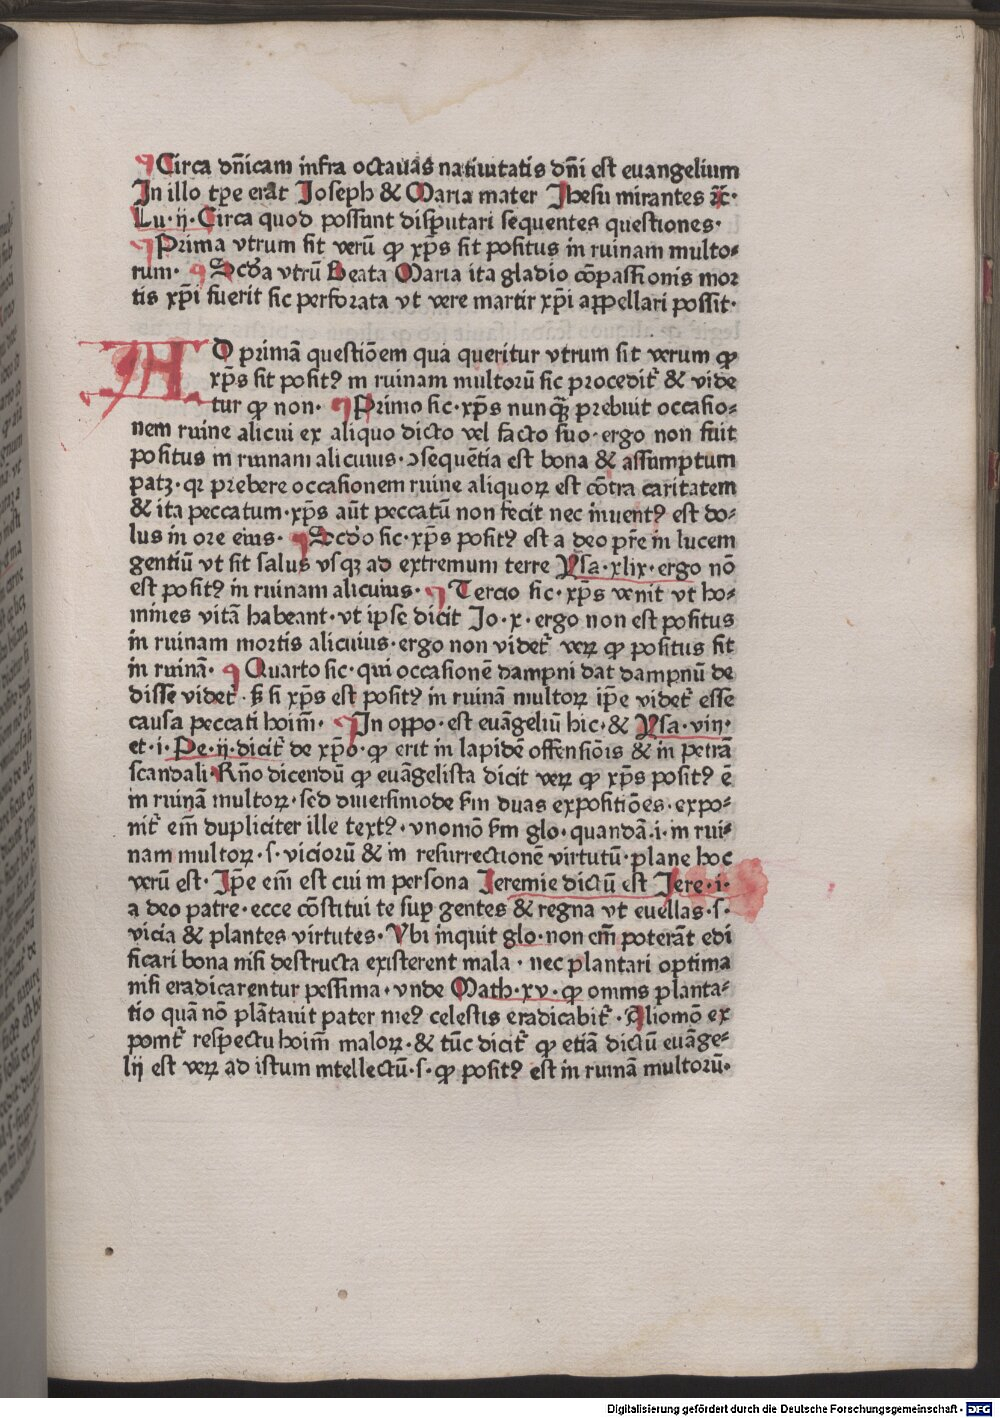 ¶Circa dn̄icam infra octauas natiuitatis dn̄i est euangelium
In illo tp̄e erat Joseph & Maria mater Jhesu mirantes ꝛc̄·
Lu·ij·Circa quod possunt disputari sequentes questiones·
¶Prima vtrum sit verū ꝙ xp̄s sit positus in ruinam multo⸗
rum· ¶Scd̄a vtrū Beata Maria ita gladio cōpassionis mor
tis xp̄i fuerit sic perforata vt vere martir xp̄i appellari possit·
AD primā questiōem qua queritur vtrum sit verum ꝙ
xp̄s sit positꝰ in ruinam multorū sic proceditr̄ & vide
tur ꝙ non· ¶Primo sic·xp̄s nunqꝫ prebuit occasio⸗
nem ruine alicui ex aliquo dicto vel facto suo·ergo non fuit
positus in ruinam alicuius·ↄsequētia est bona & assumptum
patꝫ·qꝛ prebere occasionem ruine aliquoꝝ est cōtra caritatem
& ita peccatum·xp̄s aūt peccatū non fecit nec inuentꝰ est do⸗
lus in ore eius· ¶Scd̄o sic·xp̄s positꝰ est a deo pr̄e in lucem
gentiū vt sit salus vsqꝫ ad extremum terre Ysa·xlix·ergo nō
est positꝰ in ruinam alicuius· ¶Tercio sic·xp̄s venit vt ho⸗
mines vitā habeant·vt ipse dicit Jo·x·ergo non est positus
in ruinam mortis alicuius·ergo non videtr̄ veꝝ ꝙ positus sit
in ruinā· ¶Quarto sic·qui occasionē dampni dat dampnū de
disse videtr̄·sꝫ si xp̄s est positꝰ in ruinā multoꝝ ip̄e videtr̄ esse
causa peccati hoīm̄· ¶In oppo·est euāgeliū hic·& Ysa·viii·
et·i·Pe·ij·dicitr̄ de xp̄o·ꝙ erit in lapidē offensiōis & in petrā
scandali·Rn̄o dicendū ꝙ euāgelista dicit veꝝ ꝙ xp̄s positꝰ ē
in ruinā multoꝝ·sed diuersimode sm̄ duas expositiōes·expo⸗
nitr̄ em̄ dupliciter ille textꝰ·vnomō sm̄ glo·quandā·i·in rui⸗
nam multoꝝ·s·viciorū & in resurrectionē virtutū·plane hoc
verū est·Ip̄e em̄ est cui in persona Jeremie dictū est Jere·i·
a deo patre·ecce cōstitui te sup gentes & regna vt euellas·s·
vicia & plantes virtutes·Vbi inquit glo·non em̄ poterāt edi
ficari bona nisi destructa existerent mala·nec plantari optima
nisi eradicarentur pessima·vnde Math·xv·ꝙ omnis planta⸗
tio quā nō plātauit pater meꝰ celestis eradicabitr̄·Aliomō ex
ponitr̄ respectu hoīm̄ maloꝝ·& tūc dicitr̄ ꝙ etiā dictū euāge⸗
lij est veꝝ ad istum intellectū·s·ꝙ positꝰ est in ruinā multorū·
Digitalisierung gefördert durch die Deutsche Forschungsgemeinschaft · DFG